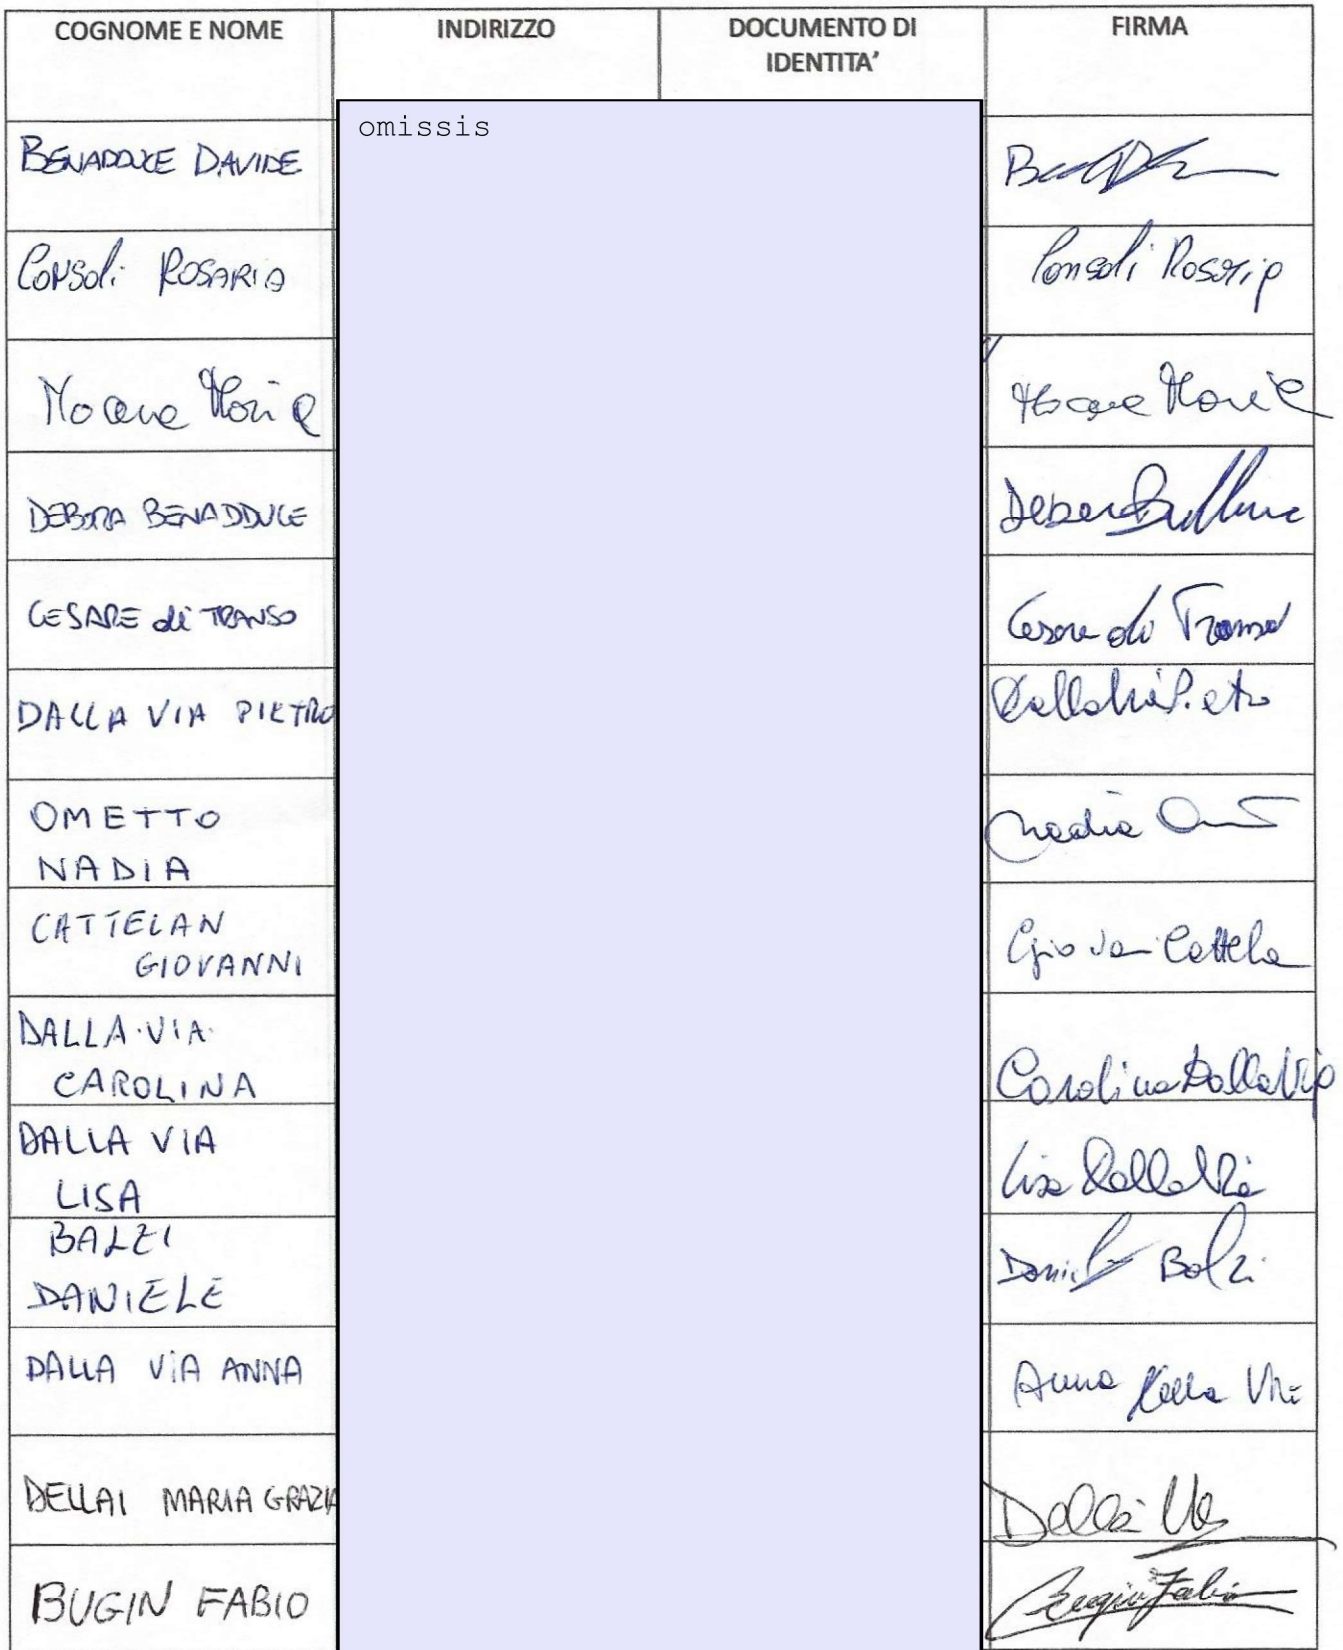 COGNOME E NOME INDIRIZZO DOCUMENTO DI FIRMA
IDENTITA'
omissis
BENADDUCE DAVIDE
CONSOLI ROSARIA Consoli Rosaria
Maria
DEBORA BENADDUCE Debora
CESARE di TRANSO Cesare di Transo
DALLA VIA PIETRO Dalla Via Pietro
OMETTO
NADIA Nadia
CATTELAN
GIOVANNI Giovanni Cattelan
DALLA VIA
CAROLINA Carolina Dalla Via
DALLA VIA
LISA Lisa Dalla Via
BALZI
DANIELE Daniele Balzi
DALLA VIA ANNA Anna Dalla Via
DELLAI MARIA GRAZIA
BUGIN FABIO Bugin Fabio